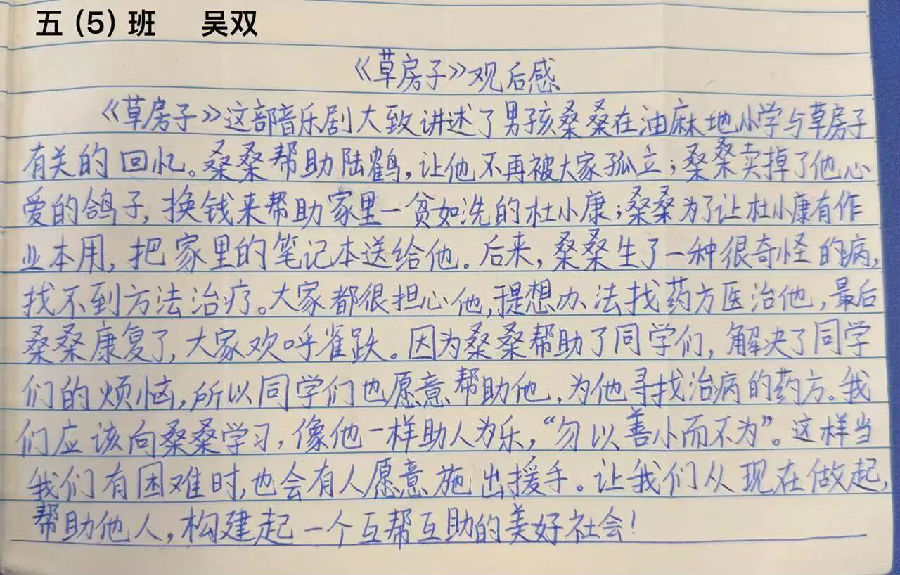 五（5）班 吴双
《草房子》观后感
《草房子》这部音乐剧大致讲述了男孩桑桑在油麻地小学与草房子
有关的回忆。桑桑帮助陆鹤，让他不再被大家孤立；桑桑卖掉了他心
爱的鸽子，换钱来帮助家里一贫如洗的杜小康；桑桑为了让杜小康有作
业本用，把家里的笔记本送给他。后来，桑桑生了一种很奇怪的病，
找不到方法治疗。大家都很担心他，想办法找药方医治他，最后
桑桑康复了，大家欢呼雀跃。因为桑桑帮助了同学们，解决了同学
们的烦恼，所以同学们也愿意帮助他，为他寻找治病的药方。我
们应该向桑桑学习，像他一样助人为乐，“勿以善小而不为”。这样当
我们有困难时，也会有人愿意施出援手。让我们从现在做起，
帮助他人，构建起一个互帮互助的美好社会！